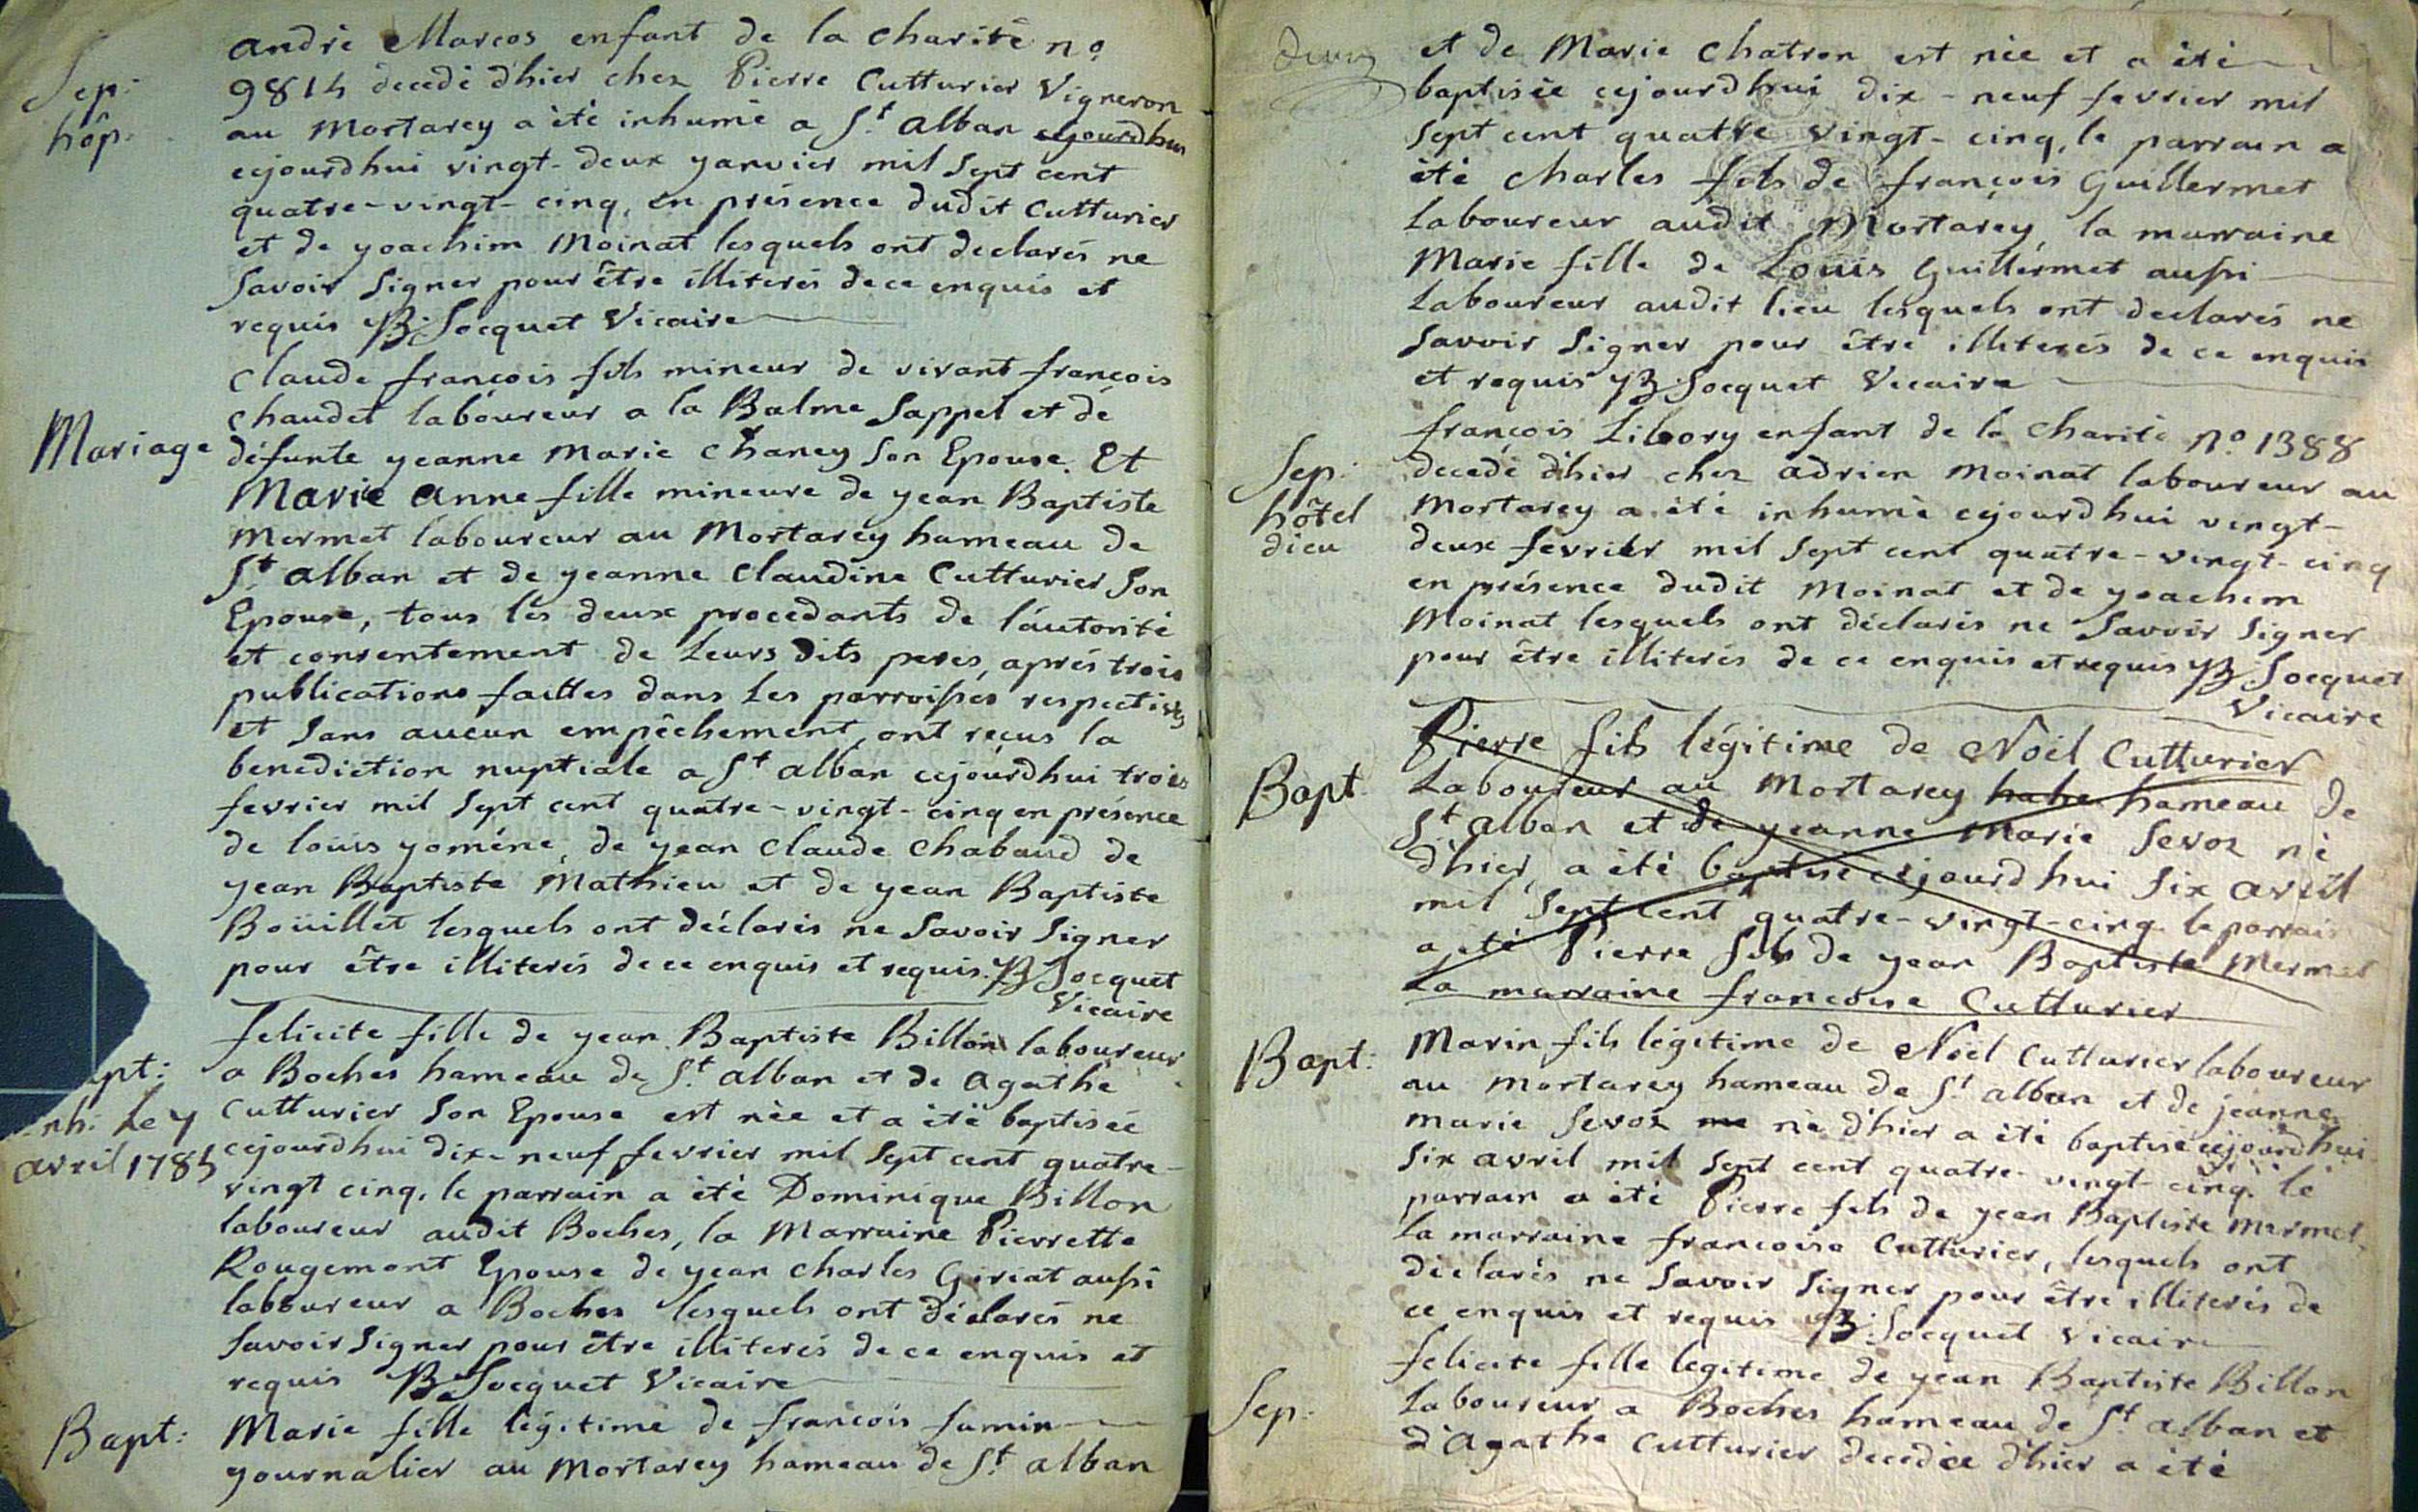 andrè Marcos enfant de la charitè no.
Sep: 9814 decedè d'hier chez Pierre Cutturier Vigneron
hôp. au Mortarey a ètè inhumè a St. alban cejourdhui
cejourdhui vingt-deux yanvier mil Sept cent
quatre-vingt-cinq, en présence dudit Cutturier
et de yoachim Moinat lesquels ont declarés ne
Savoir Signer pour être illiterés de ce enquis et
requis JB: Socquet Vicaire
Claude françois fils mineur de vivant françois
chaudet laboureur a la Balme Sappel et de
Mariage défunte yeanne Marie Chaney Son Epouse. Et
Marie anne fille mineure de yean Baptiste
Mermet laboureur au Mortarey hameau de
St. alban et de yeanne Claudine Cutturier Son
Epouse, tous les deux procedants de l'autoritè
et consentement de Leurs dits peres, aprés trois
publications faittes dans les parroisses respectives
et Sans aucun empêchement, ont reçus la
benediction nuptiale a St alban cejourdhui trois
fevrier mil Sept cent quatre-vingt-cinq en présence
de loüis yoméne, de yean Claude Chabaud de
yean Baptiste Mathieu et de yean Baptiste
Boüillet lesquels ont déclarés ne Savoir Signer
pour être illiterés de ce enquis et requis. JB Socquet
Vicaire
felicite fille de yean Baptiste Billon laboureur
pt: a Boches hameau de St. alban et de Agathe
nh: Le 7 Cutturier Son Epouse est nèe et a ètè baptiseè
avril 1785 cejourdhui dix-neuf fevrier mil Sept cent quatre-
vingt cinq, le parrain a ètè Dominique Billon
laboureur audit Boches, la Marraine Pierrette
Rougemont Epouse de yean Charles Giriat aussi
laboureur a Boches lesquels ont déclarés ne
Savoir Signer pour être illiterés de ce enquis et
requis JB Socquet Vicaire
Bapt: Marie fille légitime de françois fumin
yournalier au Mortarey hameau de St. alban
et de Marie Chatron est nèe et a ètè
baptisèe cejourdhui dix-neuf fevrier mil
Sept cent quatre vingt-cinq, le parrain a
étè Charles fils de françois Guillermet
Laboureur audit Mortarey, la marraine
Marie fille de Loüis Guillermet aussi
Laboureur audit lieu lesquels ont declarés ne
Savoir Signer pour être illiterés de ce enquis
et requis JB Socquet Vicaire
françois Libory enfant de la Charitè No. 1388
Sep: decedè d'hier chez adrien Moinat laboureur au
hôtel Mortarey a étè inhumè cejourdhui vingt-
dieu deux fevrier mil Sept cent quatre-vingt-cinq
en présence dudit Moinat et de yoachim
Moinat lesquels ont déclarés ne Savoir Signer
pour être illiterés de ce enquis et requis JB Socquet
Vicaire
Pierre fils légitime de Noël Cutturier
Bapt Laboureur au Mortarey hahe hameau de
St. alban et de yeanne Marie Sevoz nè
d'hier, a étè baptisè cejourdhui Six avril
mil Sept cent quatre-vingt-cinq le parrain
a étè Pierre fils de yean Baptiste Mermet
La marraine francoise Cutturier
Bapt: Marin fils légitime de Noël Cutturier laboureur
au Mortarey hameau de St alban et de jeanne
marie Sevoz ne nè d'hier a étè baptisè cejourdhui
Six avril mil Sept cent quatre-vingt-cinq. le
parrain a étè Pierre fils de yean Baptiste Mermet,
La marraine francoise Cutturier, lesquels ont
déclarés ne Savoir Signer pour être illiterés de
ce enquis et requis JB: Socquet Vicaire
felicite fille legitime de yean Baptiste Billon
Sep: Laboureur a Boches hameau de St alban et
d'Agathe Cutturier decedèe d'hier a ètè